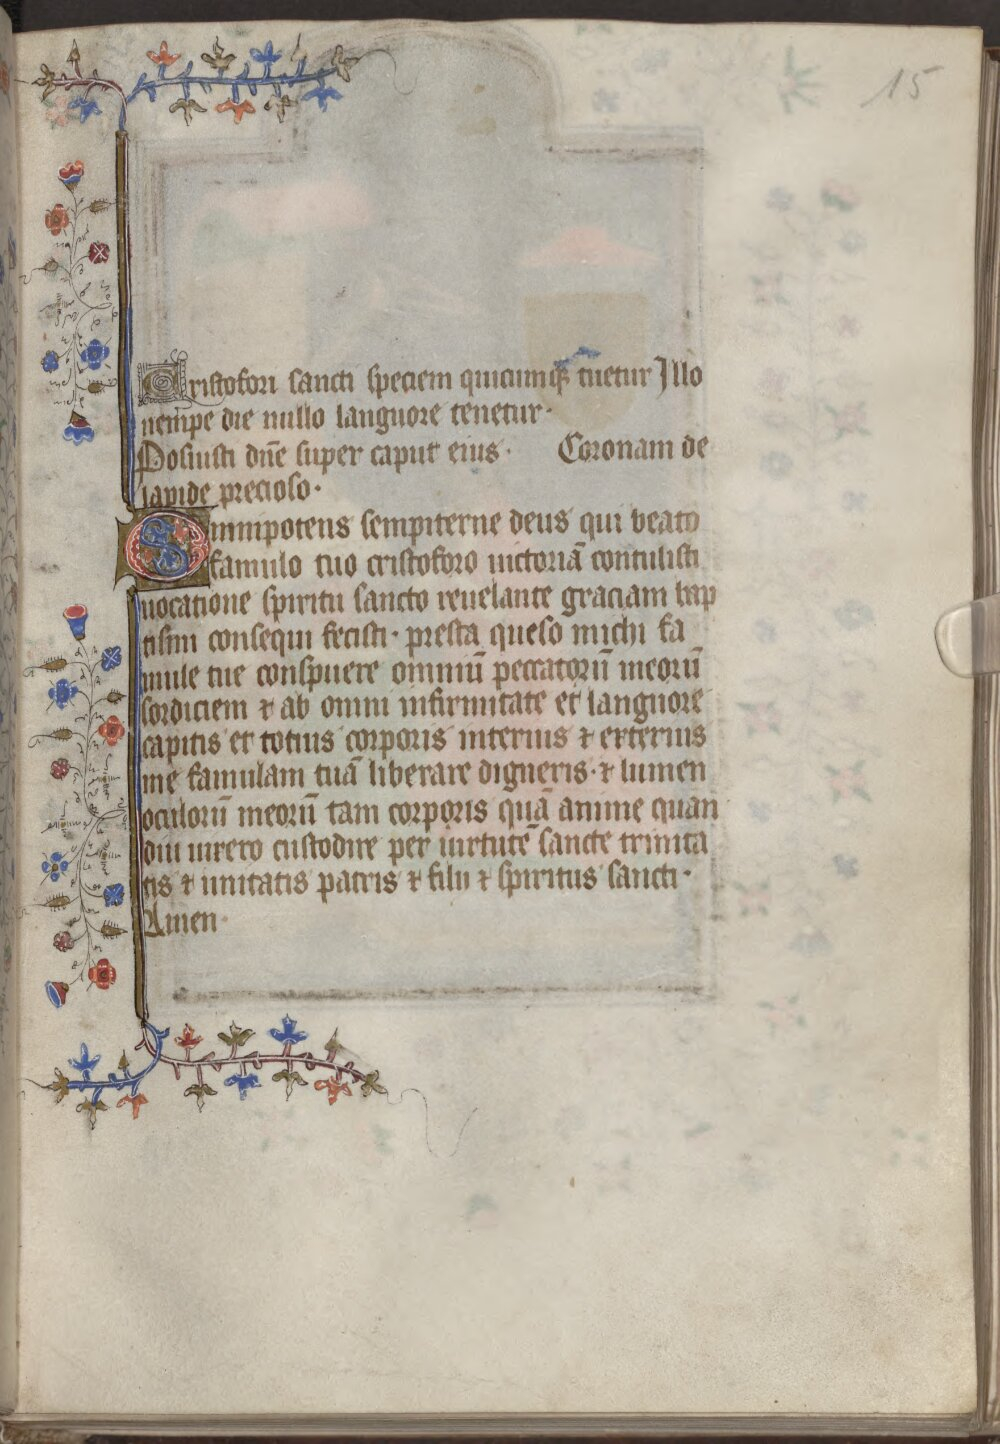 15
Cristofori sancti speciem quicumq; tuetur Illo
nempe die nullo languore tenetur·
Posuisti dn̄e super caput eius· Coronam de
lapide precioso·
Omnipotens sempiterne deus qui beato
famulo tuo cristoforo uictoriā contulisti
uocatione spiritu sancto reuelante graciam bap
tismi consequi fecisti· presta queso michi fa
mule tue conspuere omniū peccatorū meorū
sordiciem ⁊ ab omni infirmitate et languore
capitis et totius corporis interius ⁊ exterius
me famulam tuā liberare digneris·⁊ lumen
oculorū meorū tam corporis quā anime quan
diu uixero custodire per uirtutē sancte trinita
tis ⁊ unitatis patris ⁊ filii ⁊ spiritus sancti·
Amen·